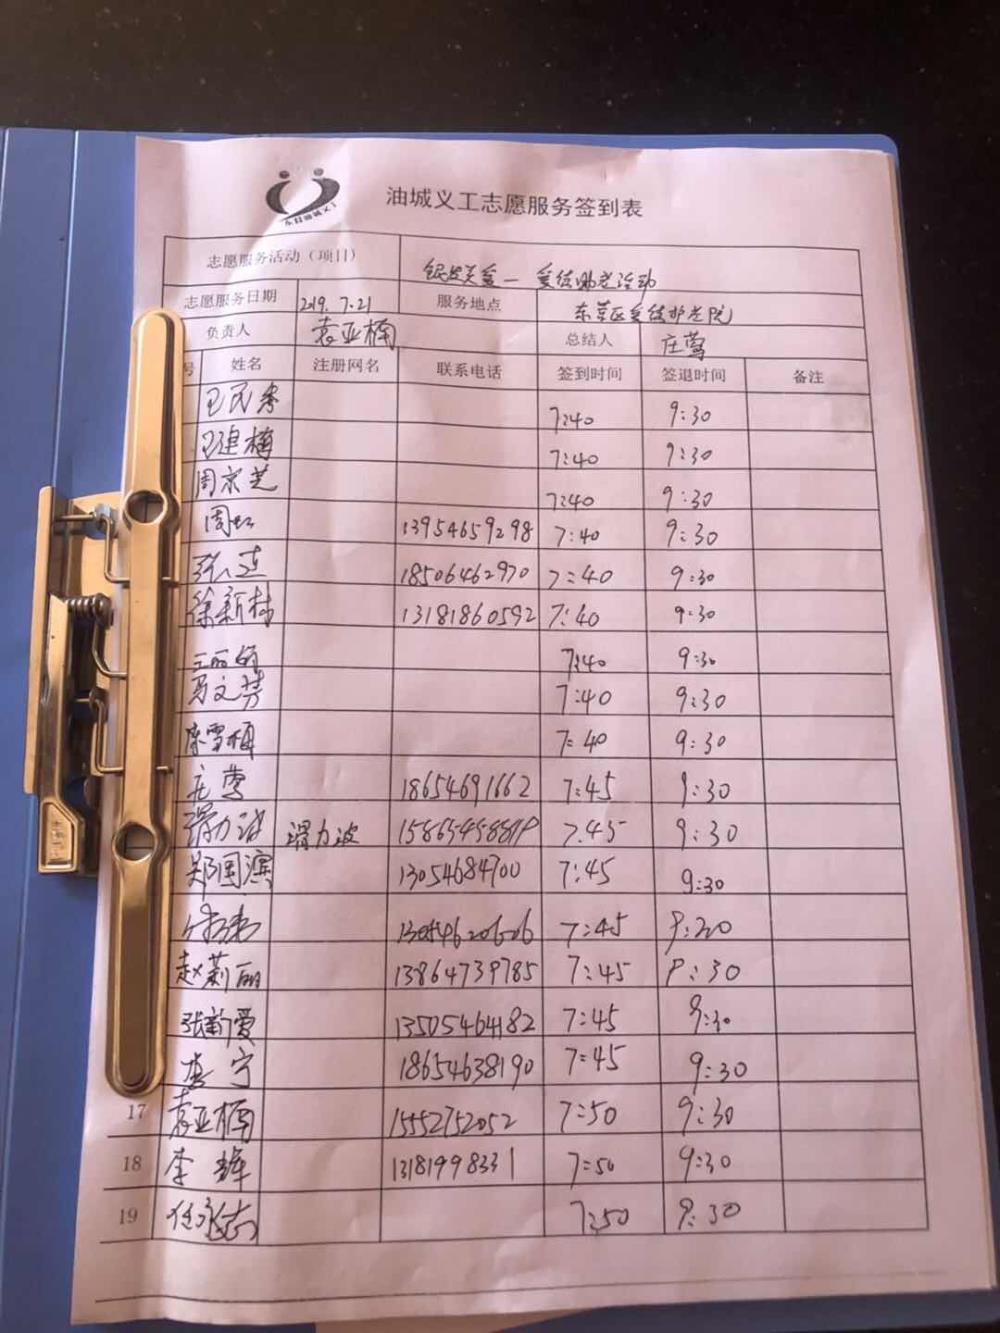 东营油城义工
油城义工志愿服务签到表
志愿服务活动（项目）
志愿服务日期 2019.7.21 服务地点
负责人 袁亚楠 总结人 庄莺
号 姓名 注册网名 联系电话 签到时间 签退时间 备注
7:40 9:30
7:40 9:30
周京芝 7:40 9:30
周虹 13954659298 7:40 9:30
18506462970 7:40 9:30
徐新村 13181860592 7:40 9:30
7:40 9:30
马文芳 7:40 9:30
7:40 9:30
庄莺 18654691662 7:45 9:30
滑力波 滑力波 7:45 9:30
郑国滨 13054684700 7:45 9:30
7:45 9:30
赵莉丽 13864739785 7:45 9:30
张新爱 13505464182 7:45 9:30
李宁 18654638190 7:45 9:30
17 袁亚楠 15552752052 7:50 9:30
18 李 13181998331 7:50 9:30
19 任永志 7:50 9:30